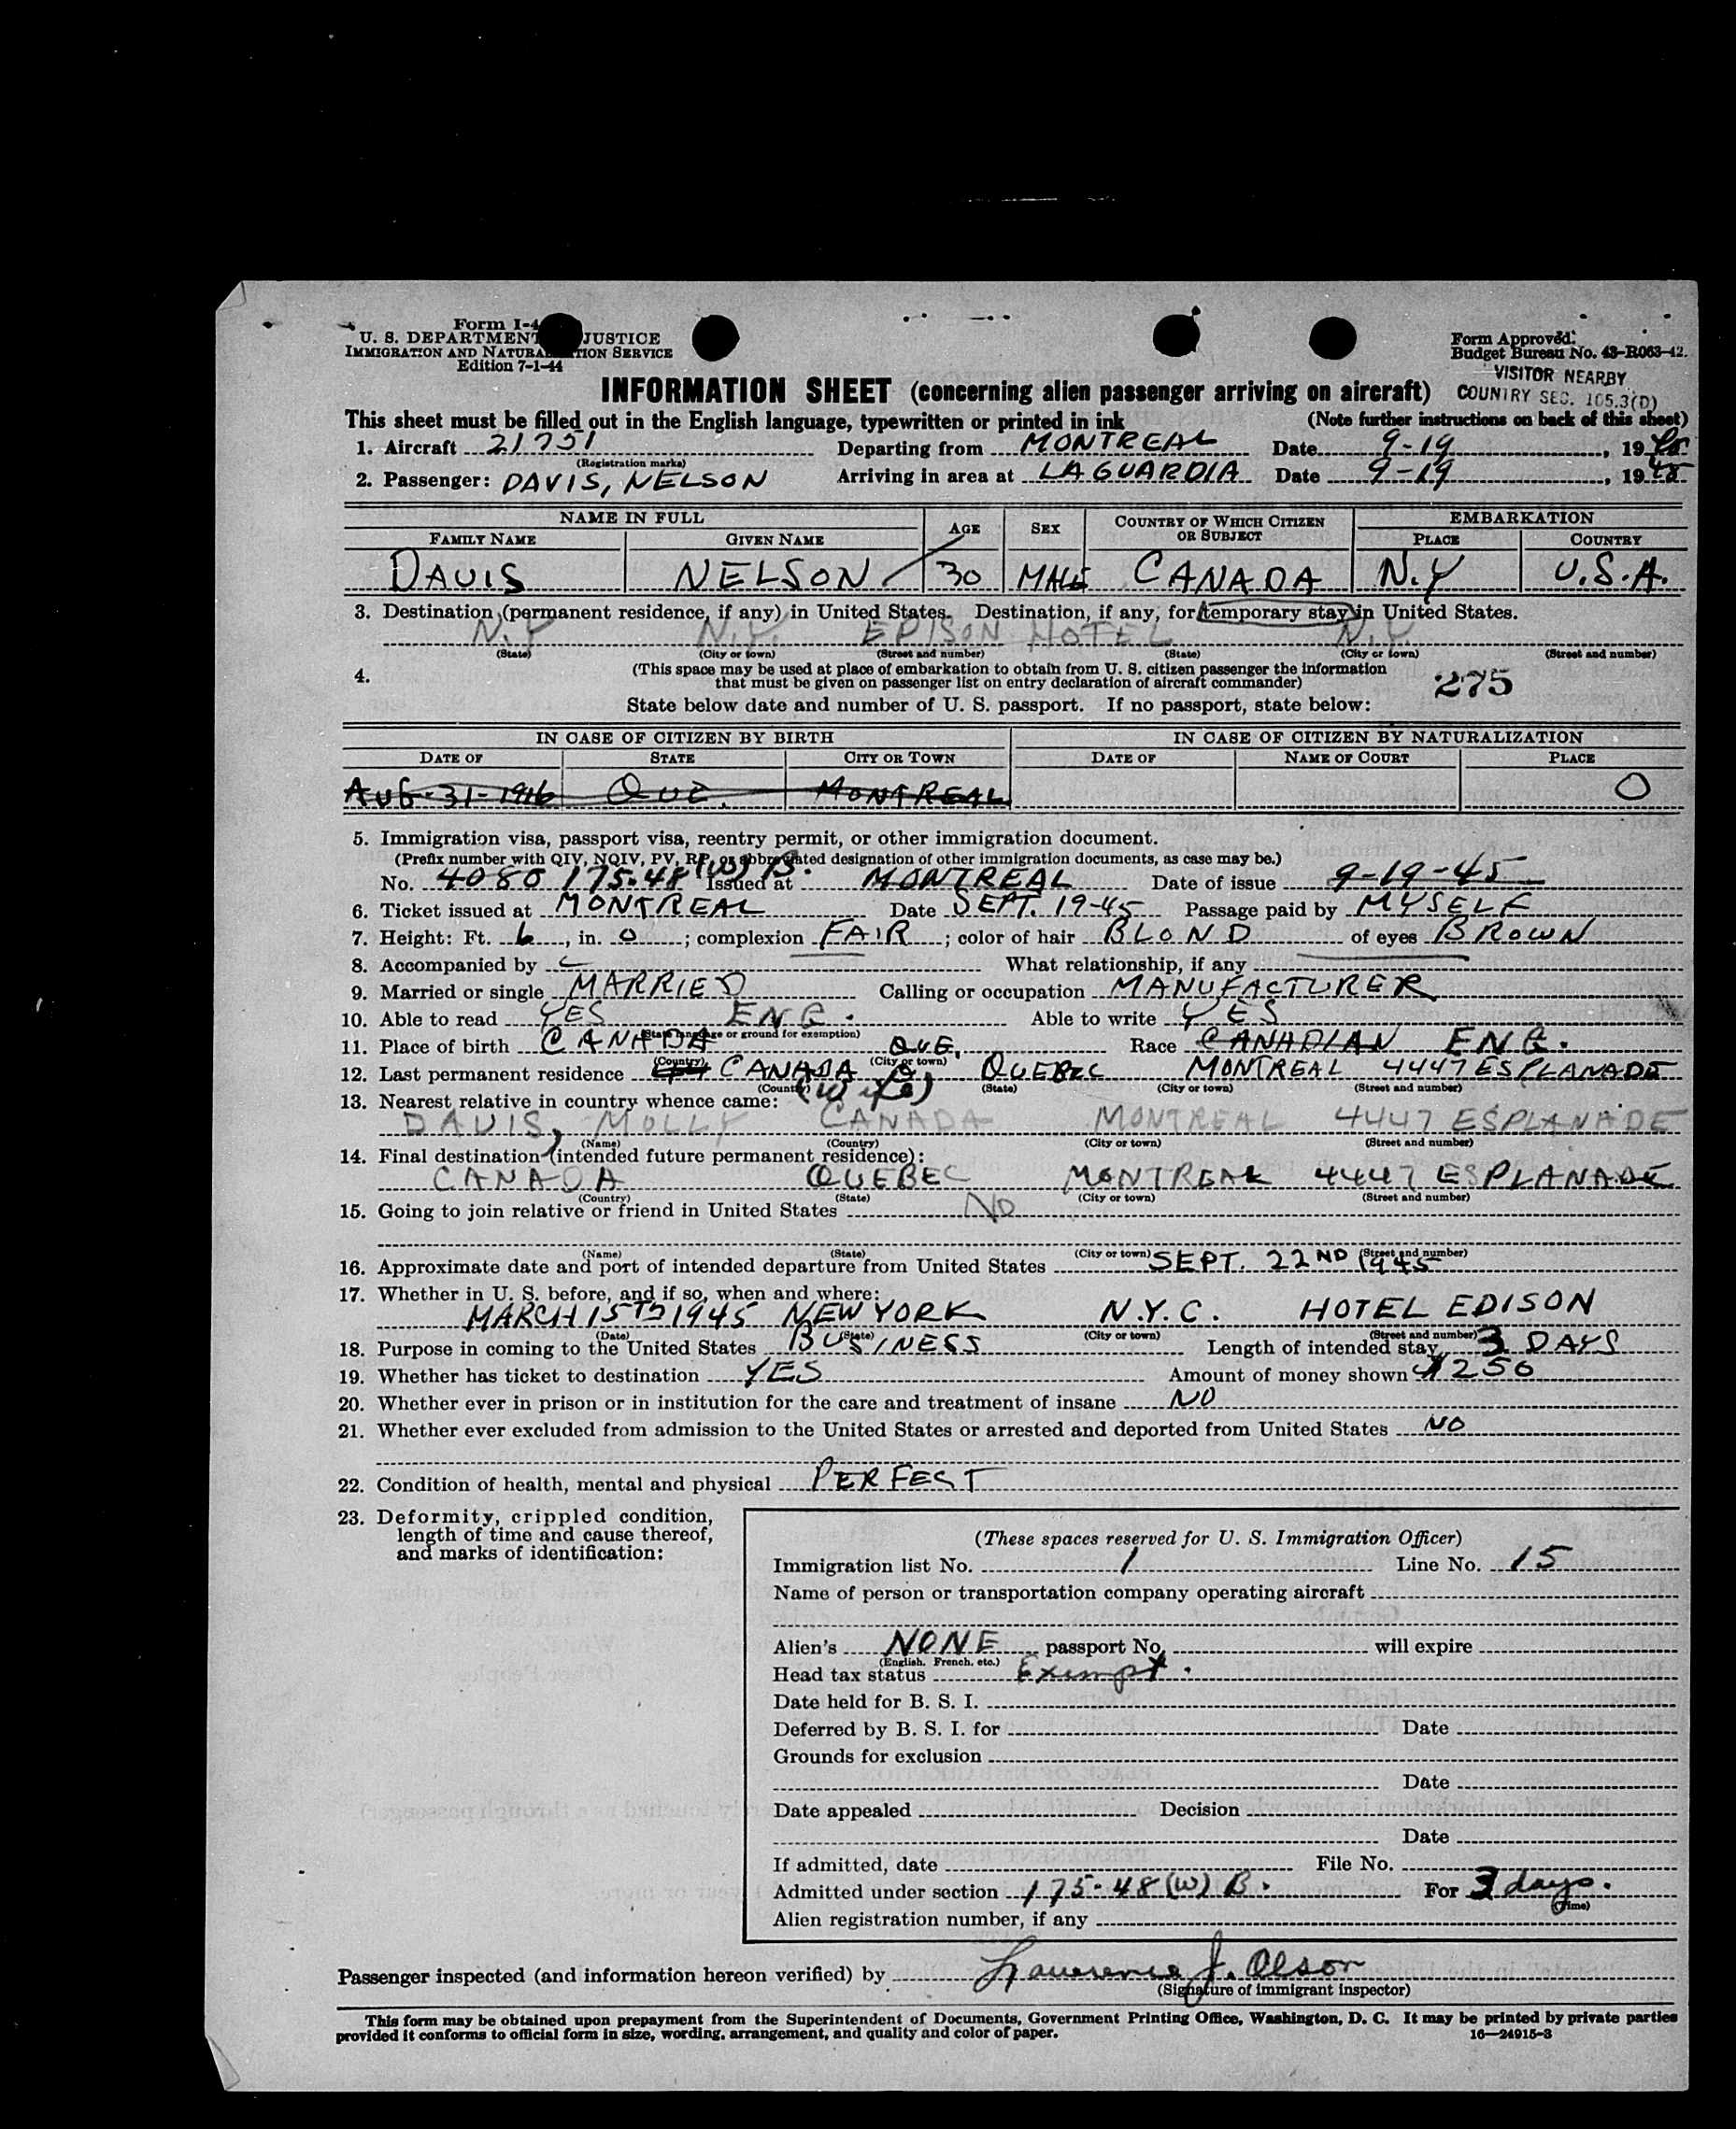 Form I-4
U. S. DEPARTMENT JUSTICE
IMMIGRATION AND NATURALIZATION SERVICE
Edition 7-1-44
Form Approved:
Budget Bureau No. 43-R063-42.
VISITOR NEARBY
COUNTRY SEC. 165.3(D)
INFORMATION SHEET (concerning alien passenger arriving on aircraft)
This sheet must be filled out in the English language, typewritten or printed in ink (Note further instructions on back of this sheet)
1. Aircraft 21751 Departing from MONTREAL Date 9-19, 1945
(Registration marks)
2. Passenger: DAVIS, NELSON Arriving in area at LAGUARDIA Date 9-19, 1945
NAME IN FULL AGE SEX COUNTRY OF WHICH CITIZEN OR SUBJECT EMBARKATION
FAMILY NAME GIVEN NAME PLACE COUNTRY
DAVIS NELSON 30 MALE CANADA N.Y U.S.A.
3. Destination (permanent residence, if any) in United States. Destination, if any, for temporary stay in United States.
N.Y N.Y. EDISON HOTEL N.Y.
(State) (City or town) (Street and number) (State) (City or town) (Street and number)
4. (This space may be used at place of embarkation to obtain from U. S. citizen passenger the information
that must be given on passenger list on entry declaration of aircraft commander) 275
State below date and number of U. S. passport. If no passport, state below:
IN CASE OF CITIZEN BY BIRTH IN CASE OF CITIZEN BY NATURALIZATION
DATE OF STATE CITY OR TOWN DATE OF NAME OF COURT PLACE
AUG-31-1916 QUE. MONTREAL O
5. Immigration visa, passport visa, reentry permit, or other immigration document.
(Prefix number with QIV, NQIV, PV, RP, or abbreviated designation of other immigration documents, as case may be.)
No. 4080 175.48 (W) B. Issued at MONTREAL Date of issue 9-19-45
6. Ticket issued at MONTREAL Date SEPT. 19-45 Passage paid by MYSELF
7. Height: Ft. 6, in. 0; complexion FAIR; color of hair BLOND of eyes BROWN
8. Accompanied by What relationship, if any
9. Married or single MARRIED Calling or occupation MANUFACTURER
10. Able to read YES ENG. Able to write YES
(State language or ground for exemption)
11. Place of birth CANADA QUE. Race CANADIAN ENG.
(Country) (City or town)
12. Last permanent residence CANADA QUEBEC MONTREAL 4447 ESPLANADE
(Country) (State) (City or town) (Street and number)
13. Nearest relative in country whence came: (Wife)
DAVIS, MOLLY CANADA MONTREAL 4447 ESPLANADE
(Name) (Country) (City or town) (Street and number)
14. Final destination (intended future permanent residence):
CANADA QUEBEC MONTREAL 4447 ESPLANADE
(Country) (State) (City or town) (Street and number)
15. Going to join relative or friend in United States NO
(Name) (State) (City or town) (Street and number)
16. Approximate date and port of intended departure from United States SEPT. 22ND 1945
17. Whether in U. S. before, and if so, when and where:
MARCH 15TH 1945 NEW YORK N.Y.C. HOTEL EDISON
(Date) (State) (City or town) (Street and number)
18. Purpose in coming to the United States BUSINESS Length of intended stay 3 DAYS
19. Whether has ticket to destination YES Amount of money shown $250
20. Whether ever in prison or in institution for the care and treatment of insane NO
21. Whether ever excluded from admission to the United States or arrested and deported from United States NO
22. Condition of health, mental and physical PERFEST
23. Deformity, crippled condition,
length of time and cause thereof,
and marks of identification:
(These spaces reserved for U. S. Immigration Officer)
Immigration list No. 1 Line No. 15
Name of person or transportation company operating aircraft
Alien's NONE passport No. will expire
(English, French, etc.)
Head tax status Exempt.
Date held for B. S. I.
Deferred by B. S. I. for Date
Grounds for exclusion
Date
Date appealed Decision
Date
If admitted, date File No.
Admitted under section 175-48 (W) B. For 3 days.
(Time)
Alien registration number, if any
Passenger inspected (and information hereon verified) by Lawrence J. Olson
(Signature of immigrant inspector)
This form may be obtained upon prepayment from the Superintendent of Documents, Government Printing Office, Washington, D. C. It may be printed by private parties
provided it conforms to official form in size, wording, arrangement, and quality and color of paper. 16—24915-3